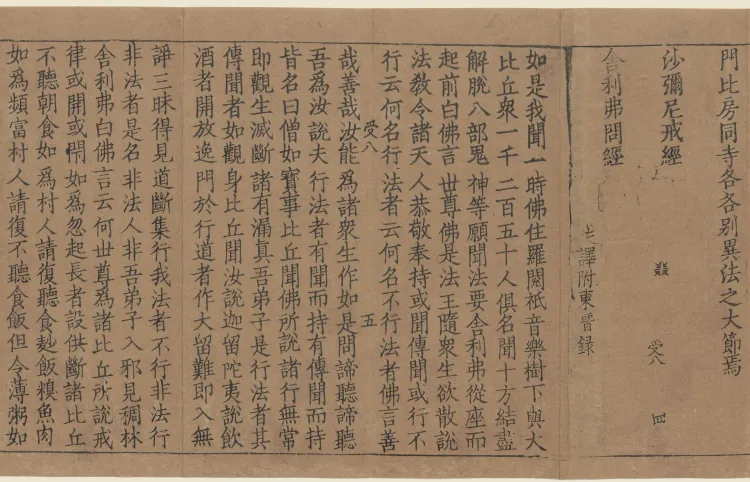 門比房同寺各各別異法之大節焉
沙彌尼戒經
受八
四
舍利弗問經
譯附東晉錄
如是我聞一時佛住羅閱祇音樂樹下與大
比丘衆一千二百五十人俱名聞十方結盡
解脫八部鬼神等願聞法要舍利弗從座而
起前白佛言世尊佛是法王隨衆生欲散說
法教令諸天人恭敬奉持或聞傳聞或行不
行云何名行法者云何名不行法者佛言善
受八
五
哉善哉汝能爲諸衆生作如是問諦聽諦聽
吾爲汝說夫行法者有聞而持有傳聞而持
皆名曰僧如寶事比丘聞佛所說諸行無常
即觀生滅斷諸有漏真吾弟子是行法者其
傳聞者如觀身比丘聞汝說迦留陀夷說飲
酒者開放逸門於行道者作大留難即入無
諍三昧得見道斷集行我法者不行非法行
非法者是名非法人非吾弟子入邪見稠林
舍利弗白佛言云何世尊爲諸比丘所說戒
律或開或閇如爲忽起長者設供斷諸比丘
不聽朝食如爲村人請復聽食麨飯糗魚肉
如爲頻富村人請復不聽食飯但令薄粥如